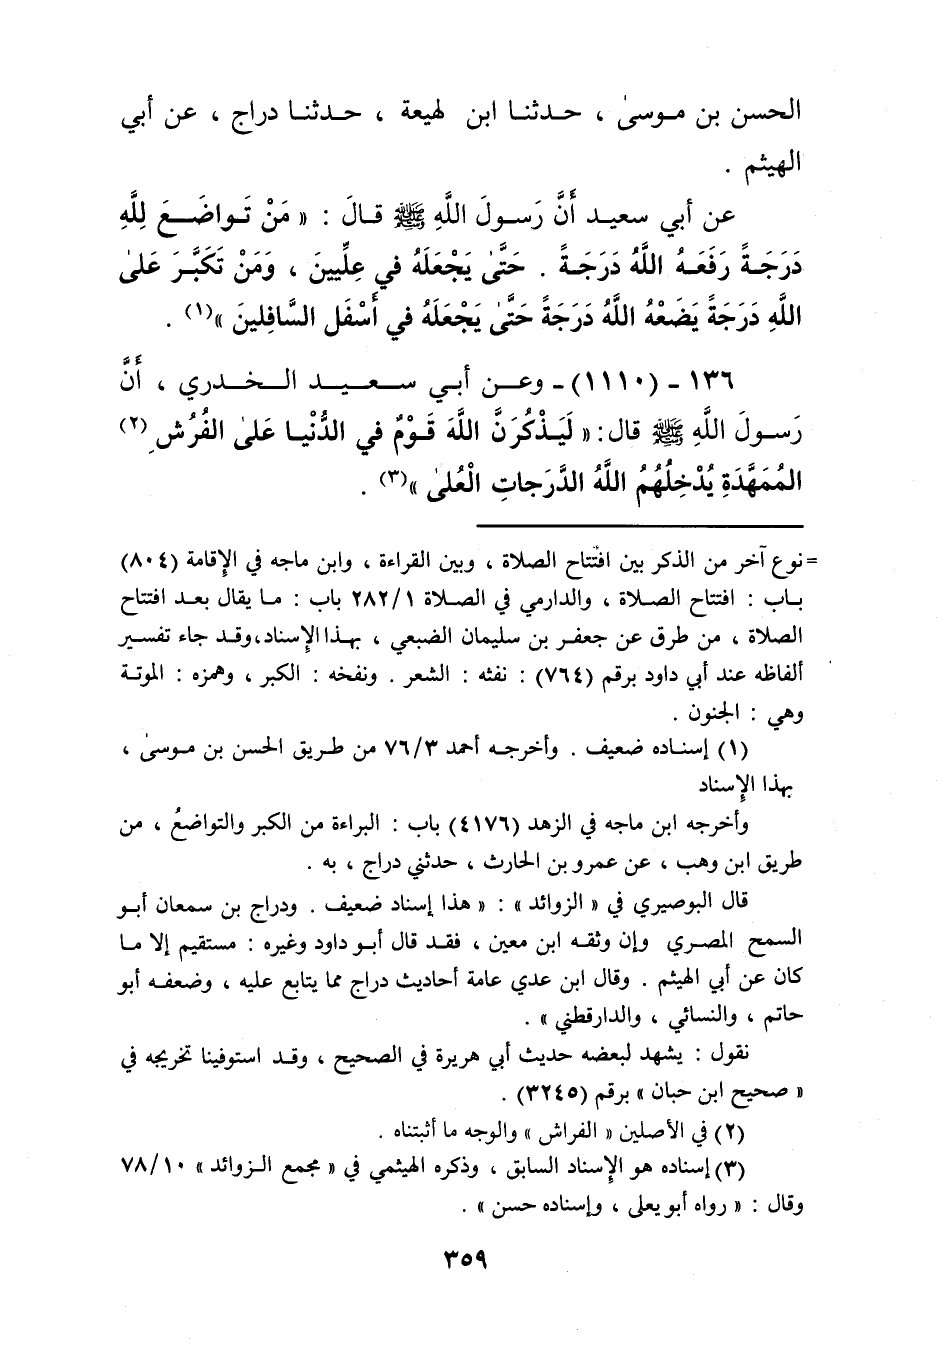 الحسن بن موسىٰ ، حدثنا ابن لهيعة ، حدثنا دراج ، عن أبي
الهيثم .
عن أبي سعيد أَنَّ رَسولَ اللَّهِ ﷺ قالَ : « مَنْ تَواضَعَ لِلَّهِ
دَرَجَةً رَفَعَهُ اللَّهُ دَرَجَةً . حَتَّىٰ يَجْعَلَهُ في عِلِّيينَ ، وَمَنْ تَكَبَّرَ عَلىٰ
اللَّهِ دَرَجَةً يَضَعْهُ اللَّهُ دَرَجَةً حَتَّىٰ يَجْعَلَهُ في أَسْفَلِ السَّافِلينَ »(١) .
١٣٦ - (١١١٠) - وعن أبي سعيد الخدري ، أَنَّ
رَسولَ اللَّهِ ﷺ قال : « لَيَذْكُرَنَّ اللَّهَ قَوْمٌ في الدُّنْيا عَلىٰ الفُرُشِ (٢)
المُمَهَّدَةِ يُدْخِلُهُمُ اللَّهُ الدَّرَجاتِ الْعُلىٰ »(٣) .
= نوع آخر من الذكر بين افتتاح الصلاة ، وبين القراءة ، وابن ماجه في الإقامة (٨٠٤)
باب : افتتاح الصلاة ، والدارمي في الصلاة ٢٨٢/١ باب : ما يقال بعد افتتاح
الصلاة ، من طرق عن جعفر بن سليمان الضبعي ، بهذا الإسناد، وقد جاء تفسير
ألفاظه عند أبي داود برقم (٧٦٤) : نفثه : الشعر . ونفخه : الكبر ، وهمزه : الموتة
وهي : الجنون .
(١) إسناده ضعيف . وأخرجه أحمد ٧٦/٣ من طريق الحسن بن موسىٰ ،
بهذا الإسناد
وأخرجه ابن ماجه في الزهد (٤١٧٦) باب : البراءة من الكبر والتواضعُ ، من
طريق ابن وهب ، عن عمرو بن الحارث ، حدثني دراج ، به .
قال البوصيري في « الزوائد » : « هذا إسناد ضعيف . ودراج بن سمعان أبو
السمح المصري وإن وثقه ابن معين ، فقد قال أبو داود وغيره : مستقيم إلا ما
كان عن أبي الهيثم . وقال ابن عدي عامة أحاديث دراج مما يتابع عليه ، وضعفه أبو
حاتم ، والنسائي ، والدارقطني » .
نقول : يشهد لبعضه حديث أبي هريرة في الصحيح ، وقد استوفينا تخريجه في
« صحيح ابن حبان » برقم (٣٢٤٥) .
(٢) في الأصلين « الفراش » والوجه ما أثبتناه .
(٣) إسناده هو الإسناد السابق ، وذكره الهيثمي في « مجمع الزوائد » ٧٨/١٠
وقال : « رواه أبو يعلى ، وإسناده حسن » .
٣٥٩